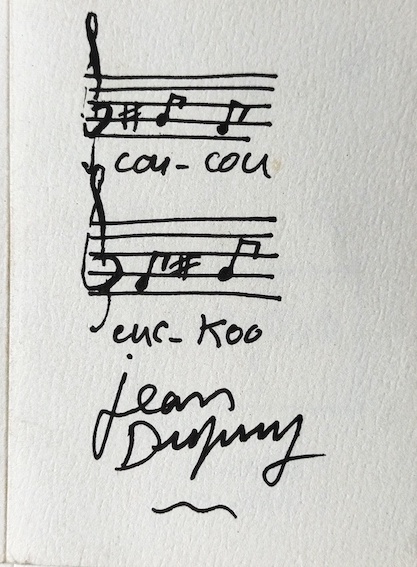 cou-cou
cuc-koo
Jean
Dupuy